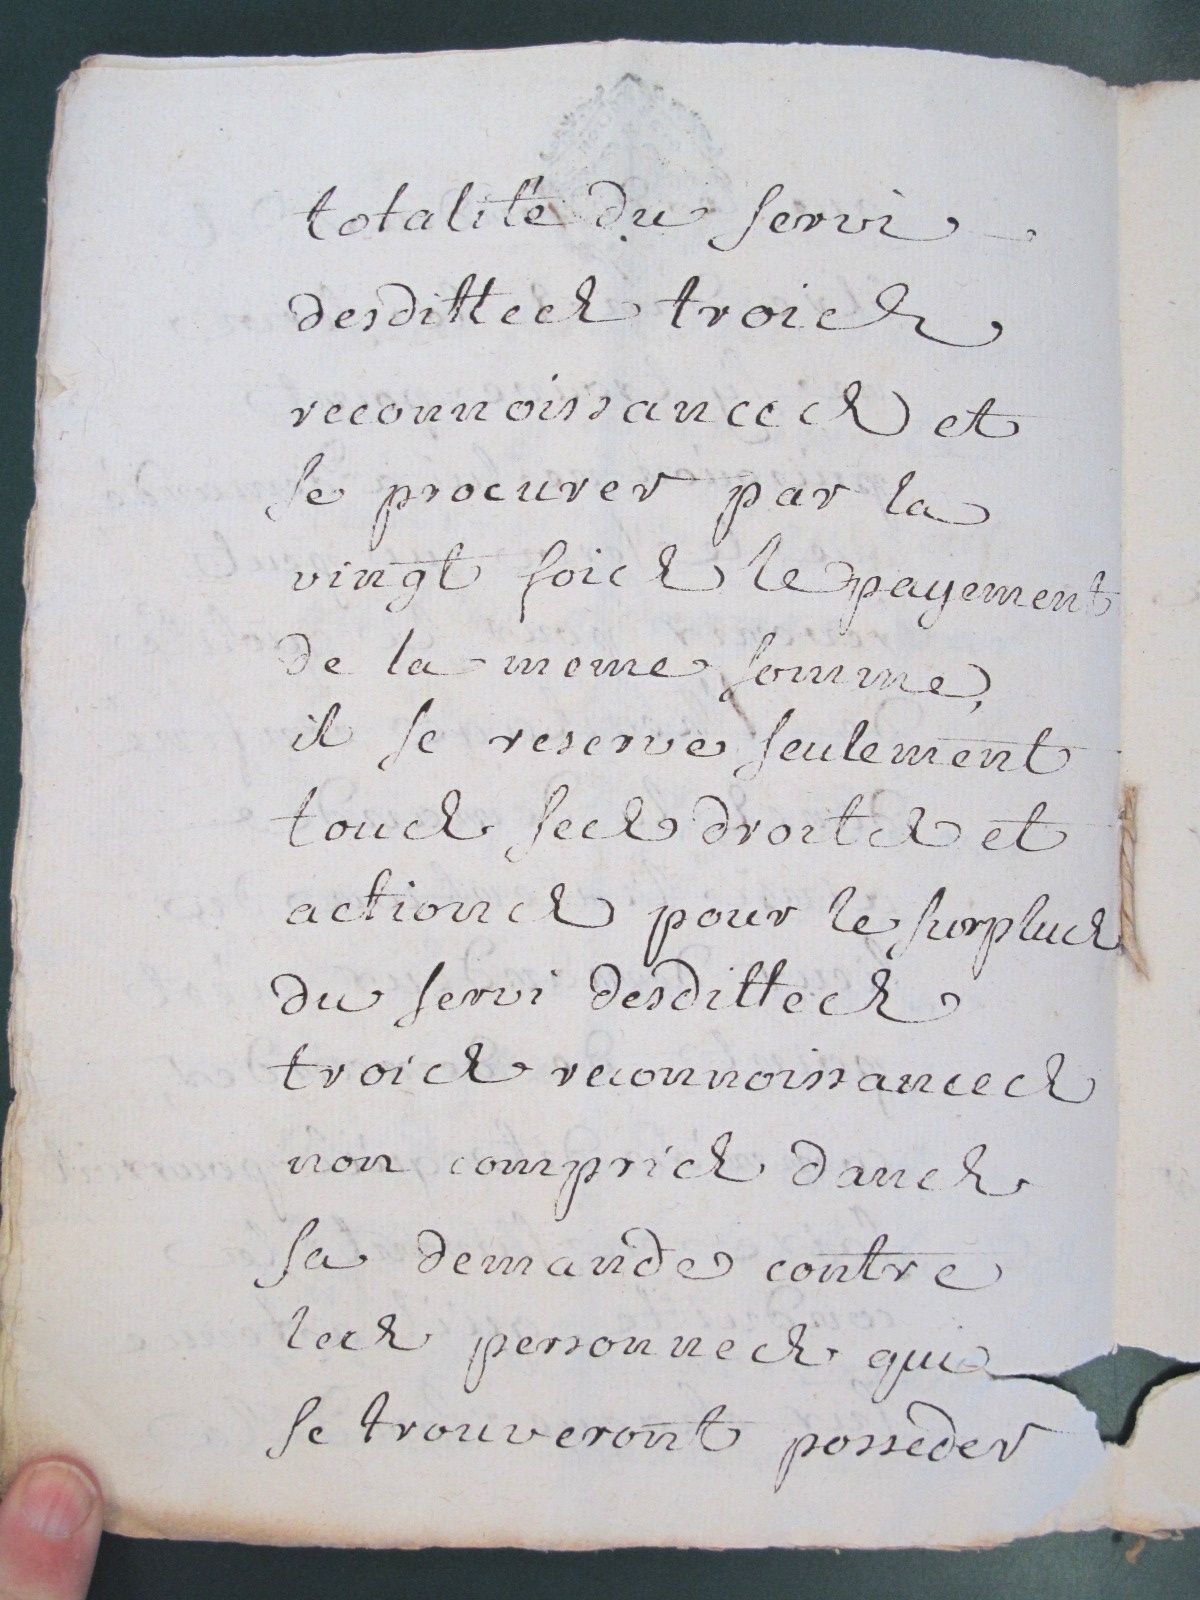 totalité du servi
desdittes trois
reconnoissances et
se procurer par la
vingt fois le payement
de la meme somme,
il se reserve seulement
tous ses droits et
actions pour le surplus
du servi desdittes
trois reconnoissances
non compris dans
sa demande contre
les personnes qui
se trouveront posseder